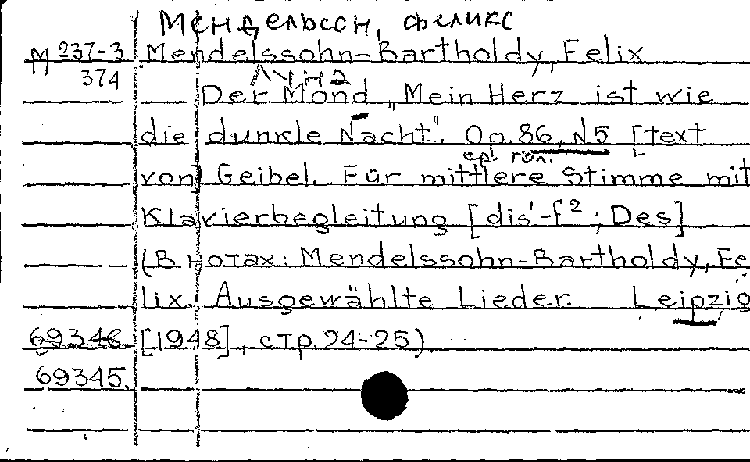 Мендельссн, феликс
М 237-3 Mendelssohn-Bartholdy, Felix
374 Луна
Der Mond „Mein Herz ist wie
die dunkle Nacht". Op. 86, N5 [text
von Geibel. Für mittlere Stimme mit
Klavierbegleitung [dis'-f²; Des]
(В нотах: Mendelssohn-Bartholdy, Fe
lix. Ausgewählte Lieder. Leipzig
69348 [1948], стр. 24-25)
69345.